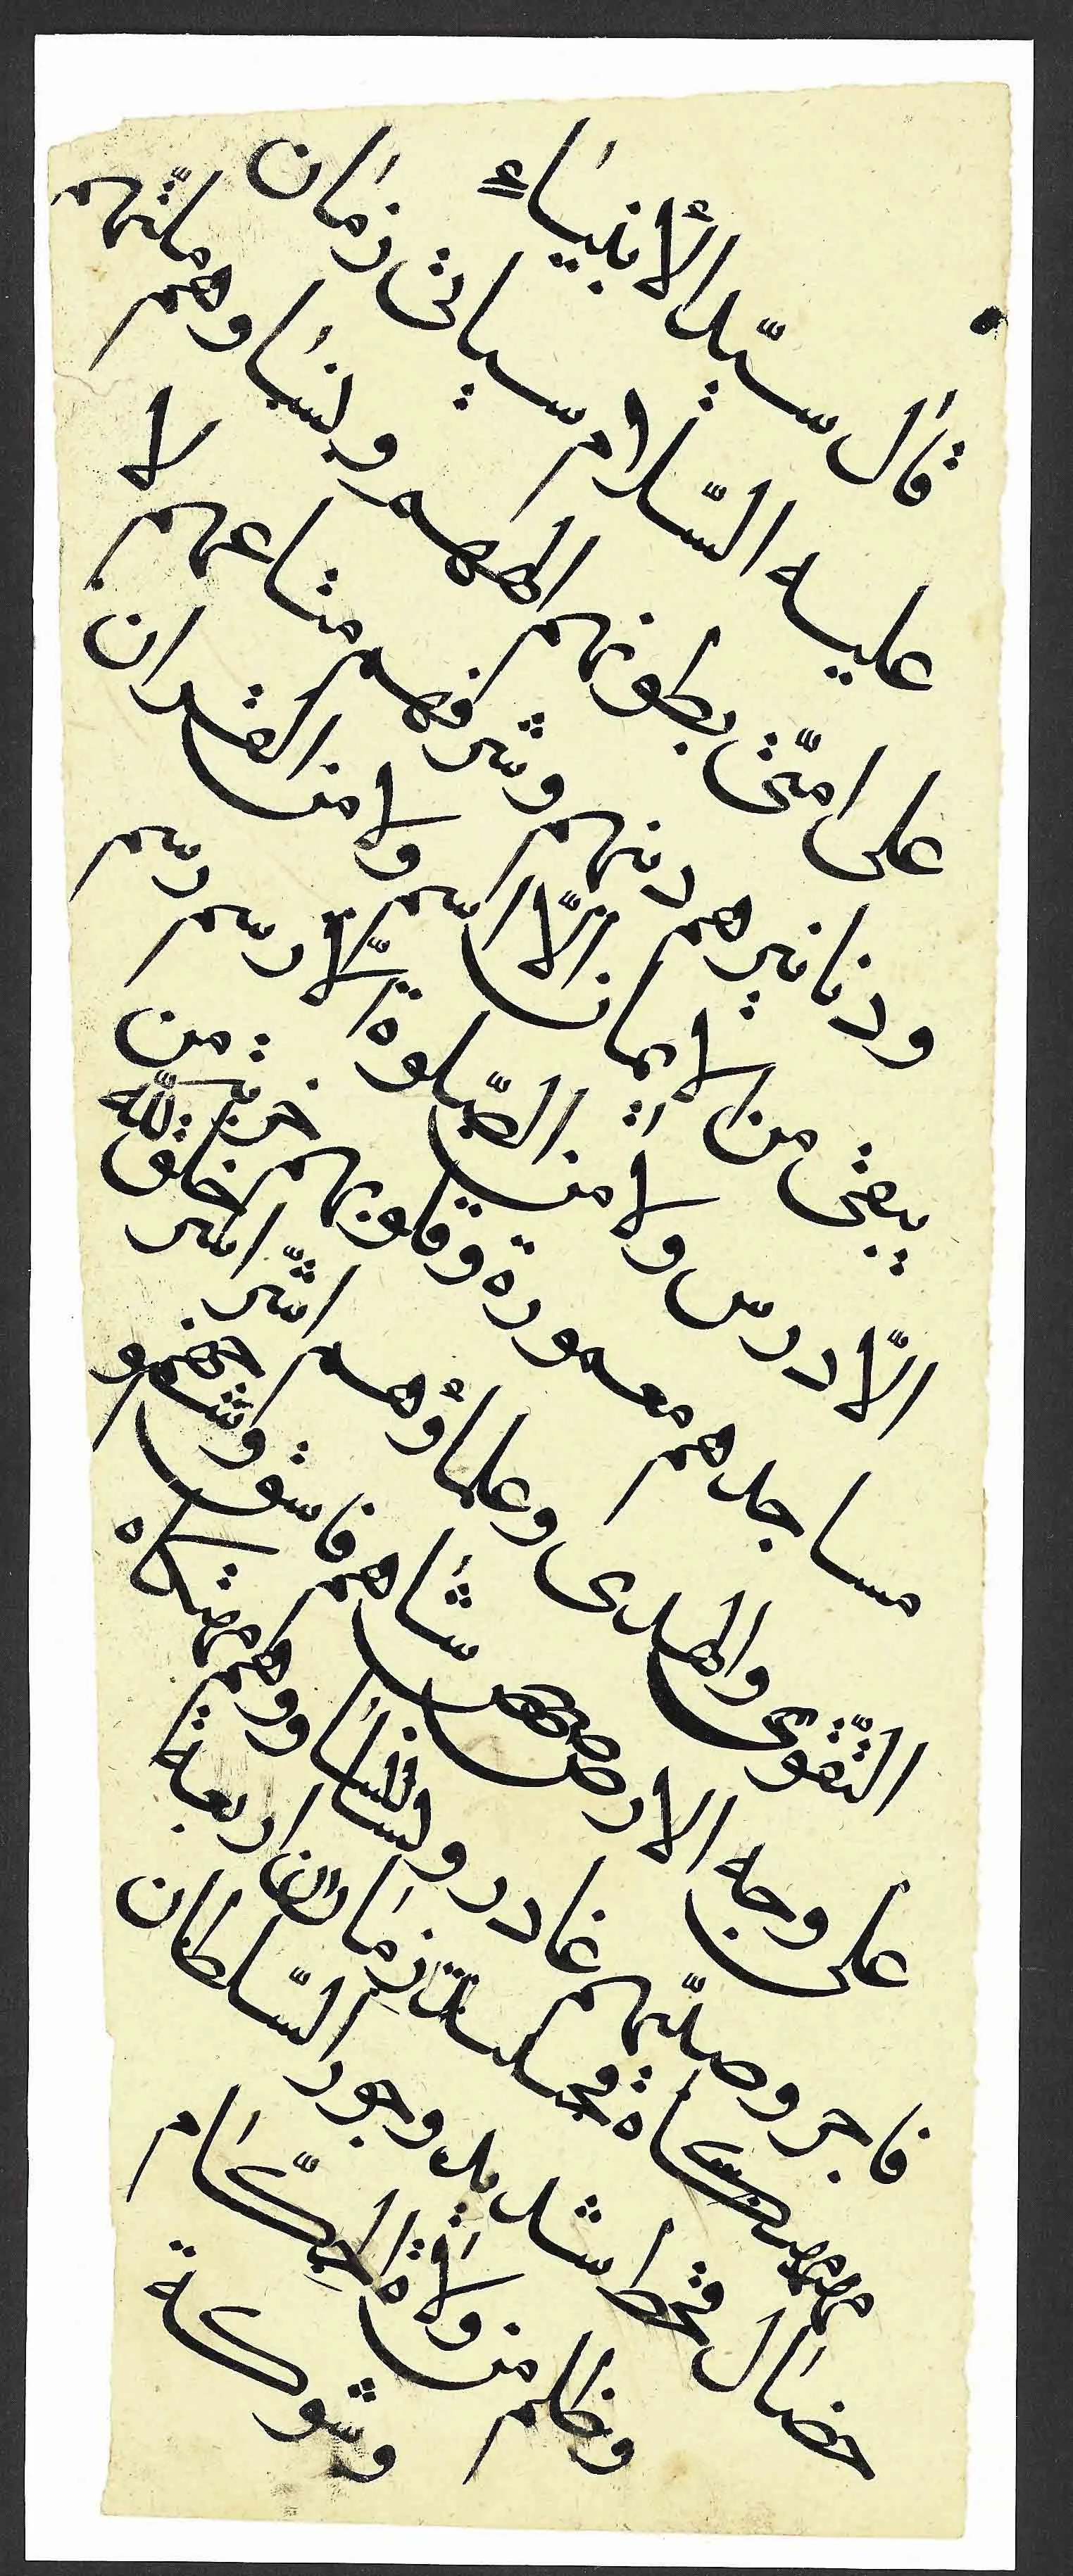 قال سيّد الأنبياء
عليه السّلام سياتى زمان
على امّتى بطونهم الههم ونساوهم قبلتهم
ودنانيرهم دينهم وشرفهم متاعهم لا
يبقى من الايمان الّا اسم ولا من القران
الّا درس ولا من الصّلوة الّا رسم
مساجدهم معمورة وقلوبهم خربة من
التّقوى والهدى وعلماؤهم اشّر خلق الله
على وجه الارض شابهم فاسق وشيخهم
فاجر وصبيّهم غادر
زمان اربعة
خصال قحط شديد وجور السّلطان
وظلم من ولاة الحكّام
وشوكة